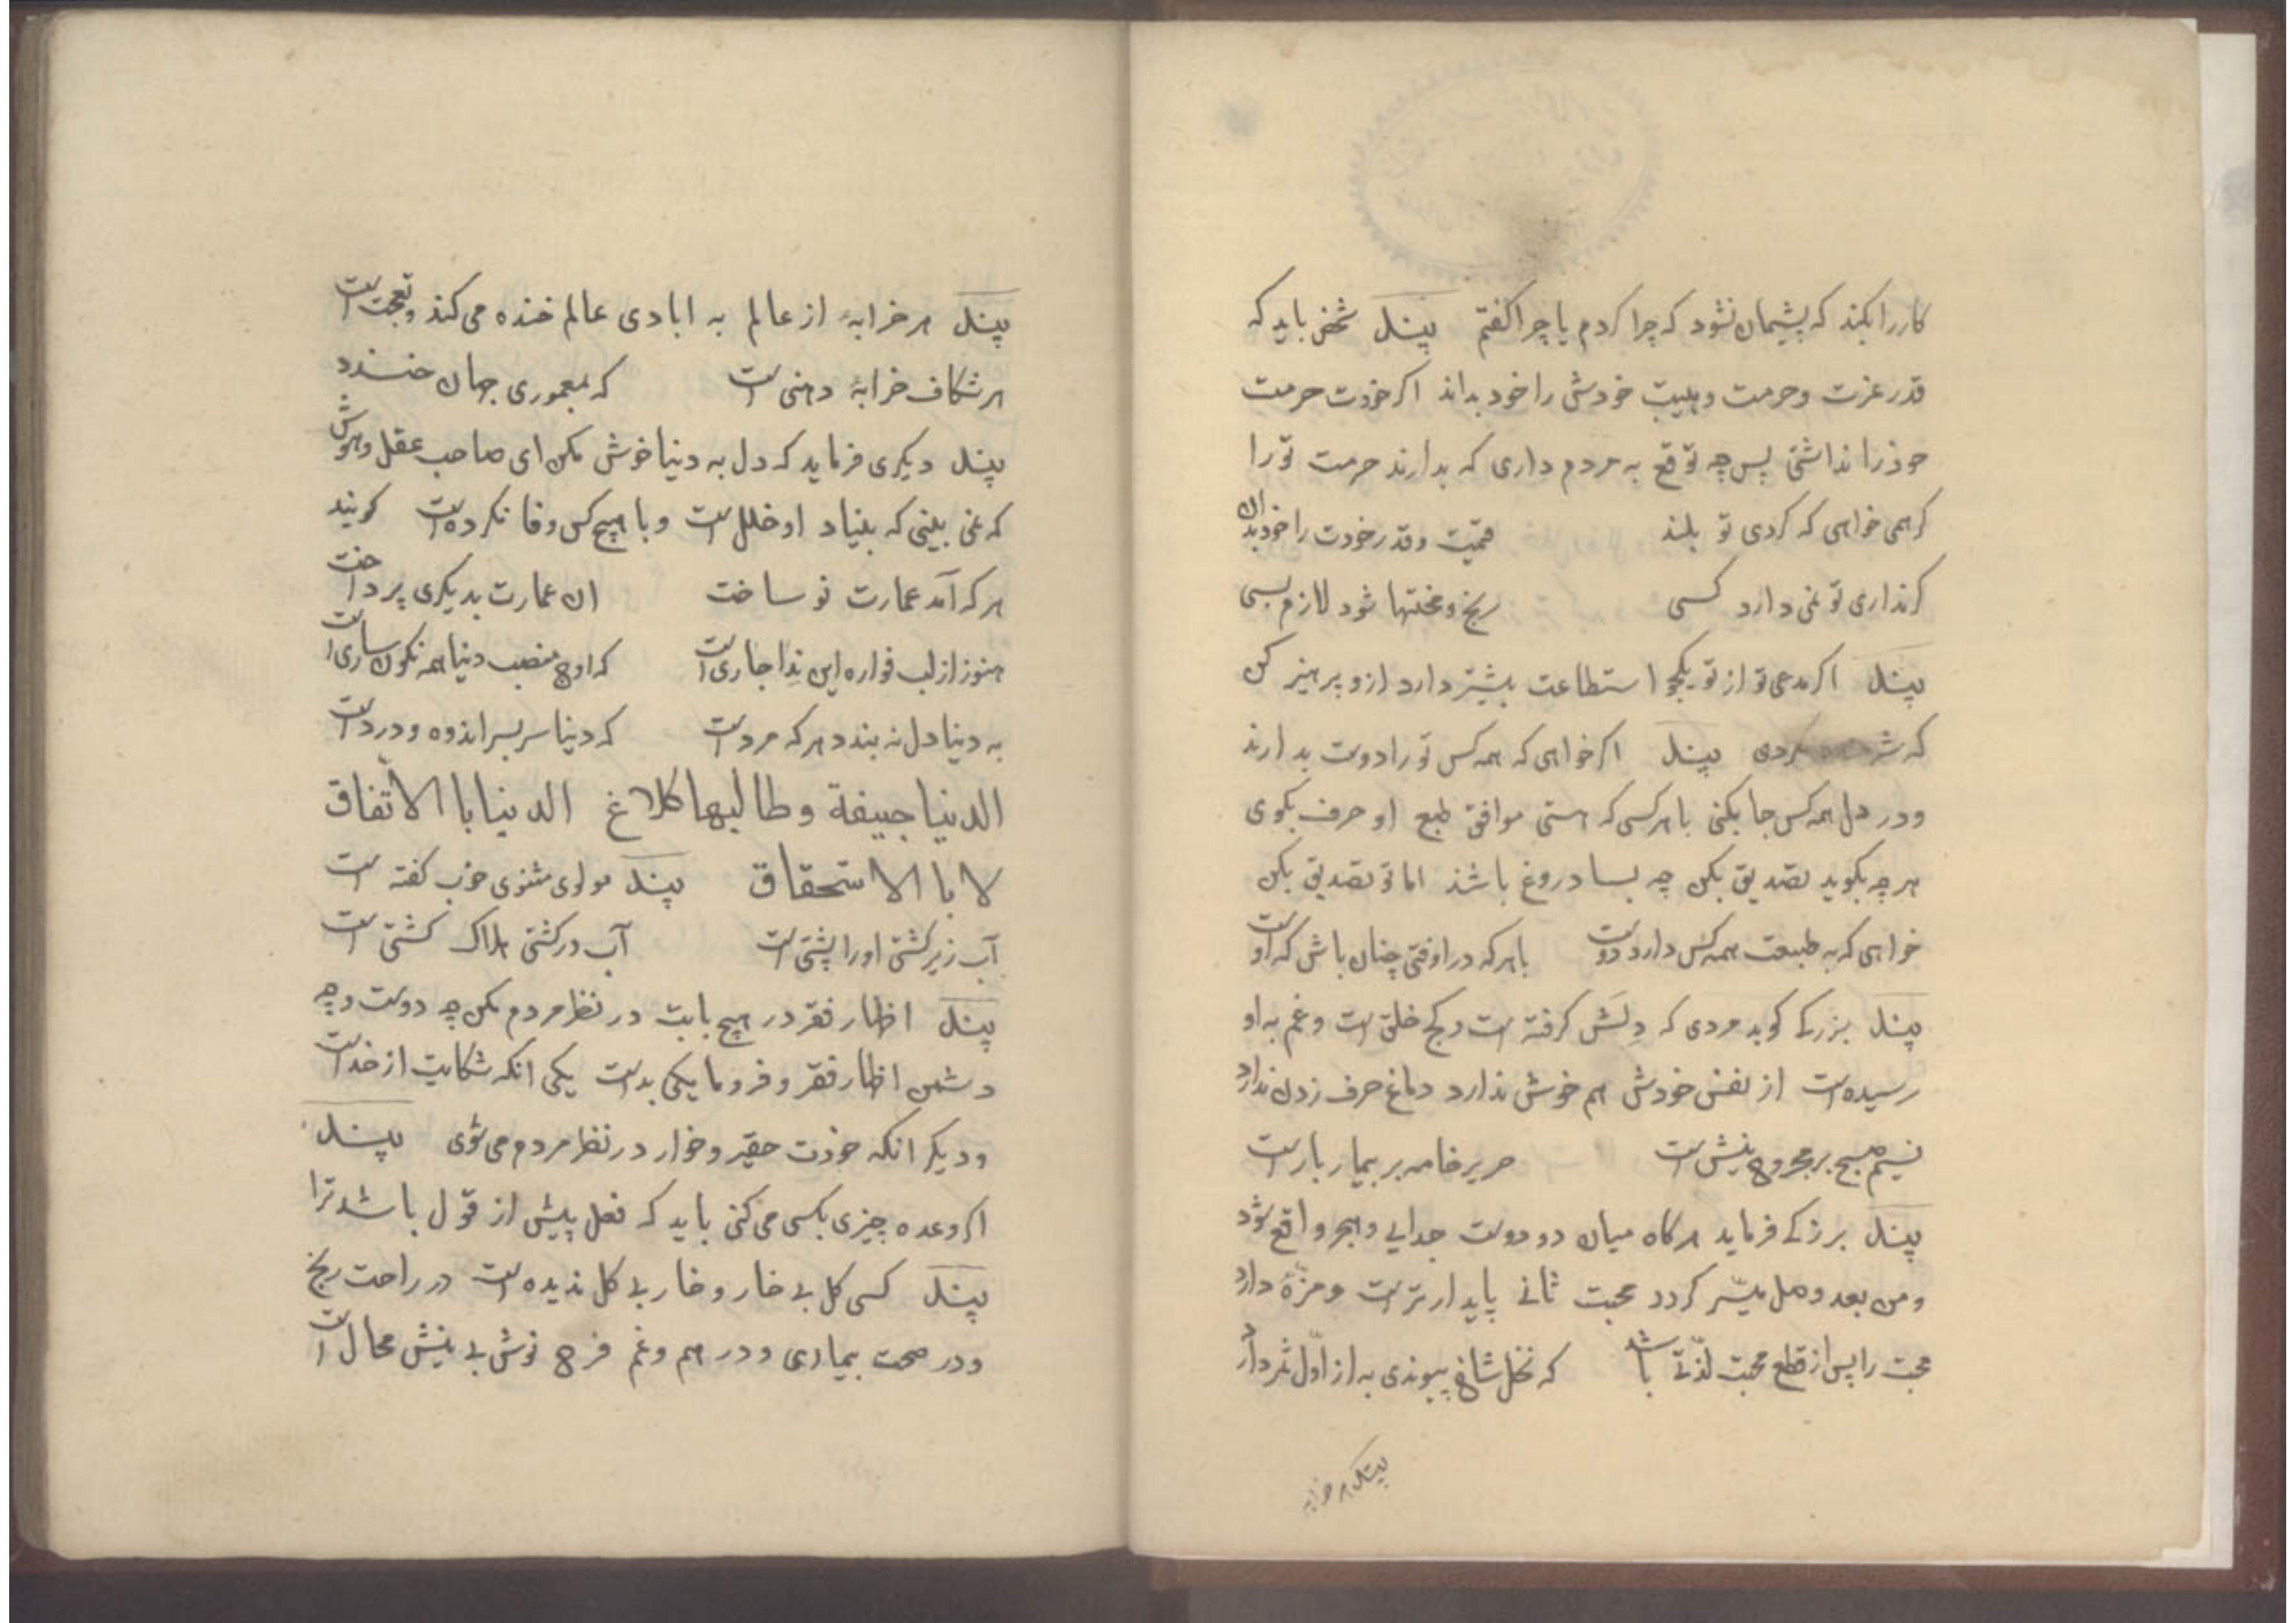 کاررا بکند که پشیمان نشود که چرا کردم یا چرا کفتم پند شخص باید که
قدر عزت و حرمت و هیبت خودش را خود بداند اکر خودت حرمت
خودرا نداشتی پس چه توقع به مردم داری که بدارند حرمت تورا
کرهمی خواهی که کردی تو بلند قیمت و قدر خودت را خود بدان
کرنداری تو نمی دارد کسی رنج و محنتها شود لازم بسی
پند اکر مدعی تو از تو یکجو استطاعت بیشتر دارد ازو پرهیز کن
که کردی پند اکر خواهی که همه کس تورا دوست بدارند
و در دل همه کس جا بکنی با هر کسی که هستی موافق طبع او حرف بکوی
هر چه بکوید تصدیق بکن چه بسا دروغ باشد اما تو تصدیق بکن
خواهی که به طبیعت همه کس دارد دوست با هر که در اوفتی چنان باش که اوست
پند بزرکے کوید مردی که دلَش کرفته است و کج خلق است و غم به او
رسیده است از نفس خودش هم خوش ندارد دماغ حرف زدن ندارد
نسیم صبح بر مجروح نیش است حریر خامه بر بیمار بار است
پند بزرکے فرماید هرکاه میان دو دوست جدایے و هجر واقع شود
و من بعد وصل میسّر کردد محبت ثانے پایدارتر است و مزّهٔ دارد
محبت را پس از قطع محبت لذّتے باشد که نخل شاخ پیوندی به از اوّل ثمر دارد
پند هر خرابه
پند هر خرابهٔ از عالم به ابادی عالم خنده می کند و تعجب است
هر شکاف خرابهٔ دهنی است که بمعموری جهان خندد
پند دیکری فرماید که دل به دنیا خوش مکن ای صاحب عقل و هوش
که نمی بینی که بنیاد او خلل است و با هیچ کس وفا نکرده است کویند
هر که آمد عمارت نو ساخت ان عمارت بدیکری پرداخت
هنوز از لب فواره این نِدا جاری است که اوج منصب دنیا همه نکون ساری است
به دنیا دل نه بندد هر که مرد است که دنیا سر بسر اندوه و درد است
الدنیا جیفة و طالبها کلاغ الدینا با الاتّفاق
لا با الاستحقاق پند مولوی مثنوی خوب کفته است
آب زیر کشتی اورا پشتی است آب در کشتی هلاک کشتی است
پند اظهار فقر در هیچ بابت در نظر مردم مکن چه دوست و چه
دشمن اظهار فقر و فرومایکی بد است یکی انکه شکایت از خداست
و دیکر انکه خودت حقیر و خوار در نظر مردم می شوی پند
اکر وعده چیزی بکسی می کنی باید که فعل پیش از قول باشد ترا
پند کسی کل بے خار و خار بے کل ندیده است در راحت رنج
و در صحت بیماری و در هم و غم فرح نوش بے نیش محال است